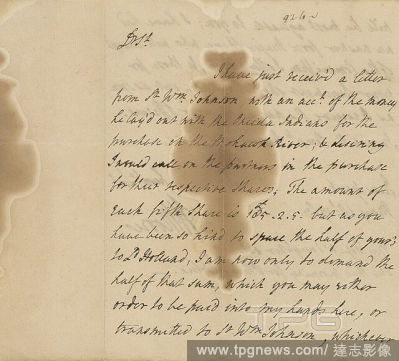 926
Dr Sr.
I have just receiv'd a letter
from Sr Wm. Johnson with an acct. of the money
he lay'd out with the Oneida Indians for the
purchase on the Mohawk River; & desiring
I would call on the partners in the purchase
for their respective shares; The amount of
each fifth share is 165.2.5. but as you
have been so kind to spare the half of yours
to Ld Holland, I am now only to demand the
half of that sum, which you may either
order to be paid into my hands here, or
transmitted to Sr Wm Johnson, whichever
TPG
www.tpgnews.com/ 達志影像